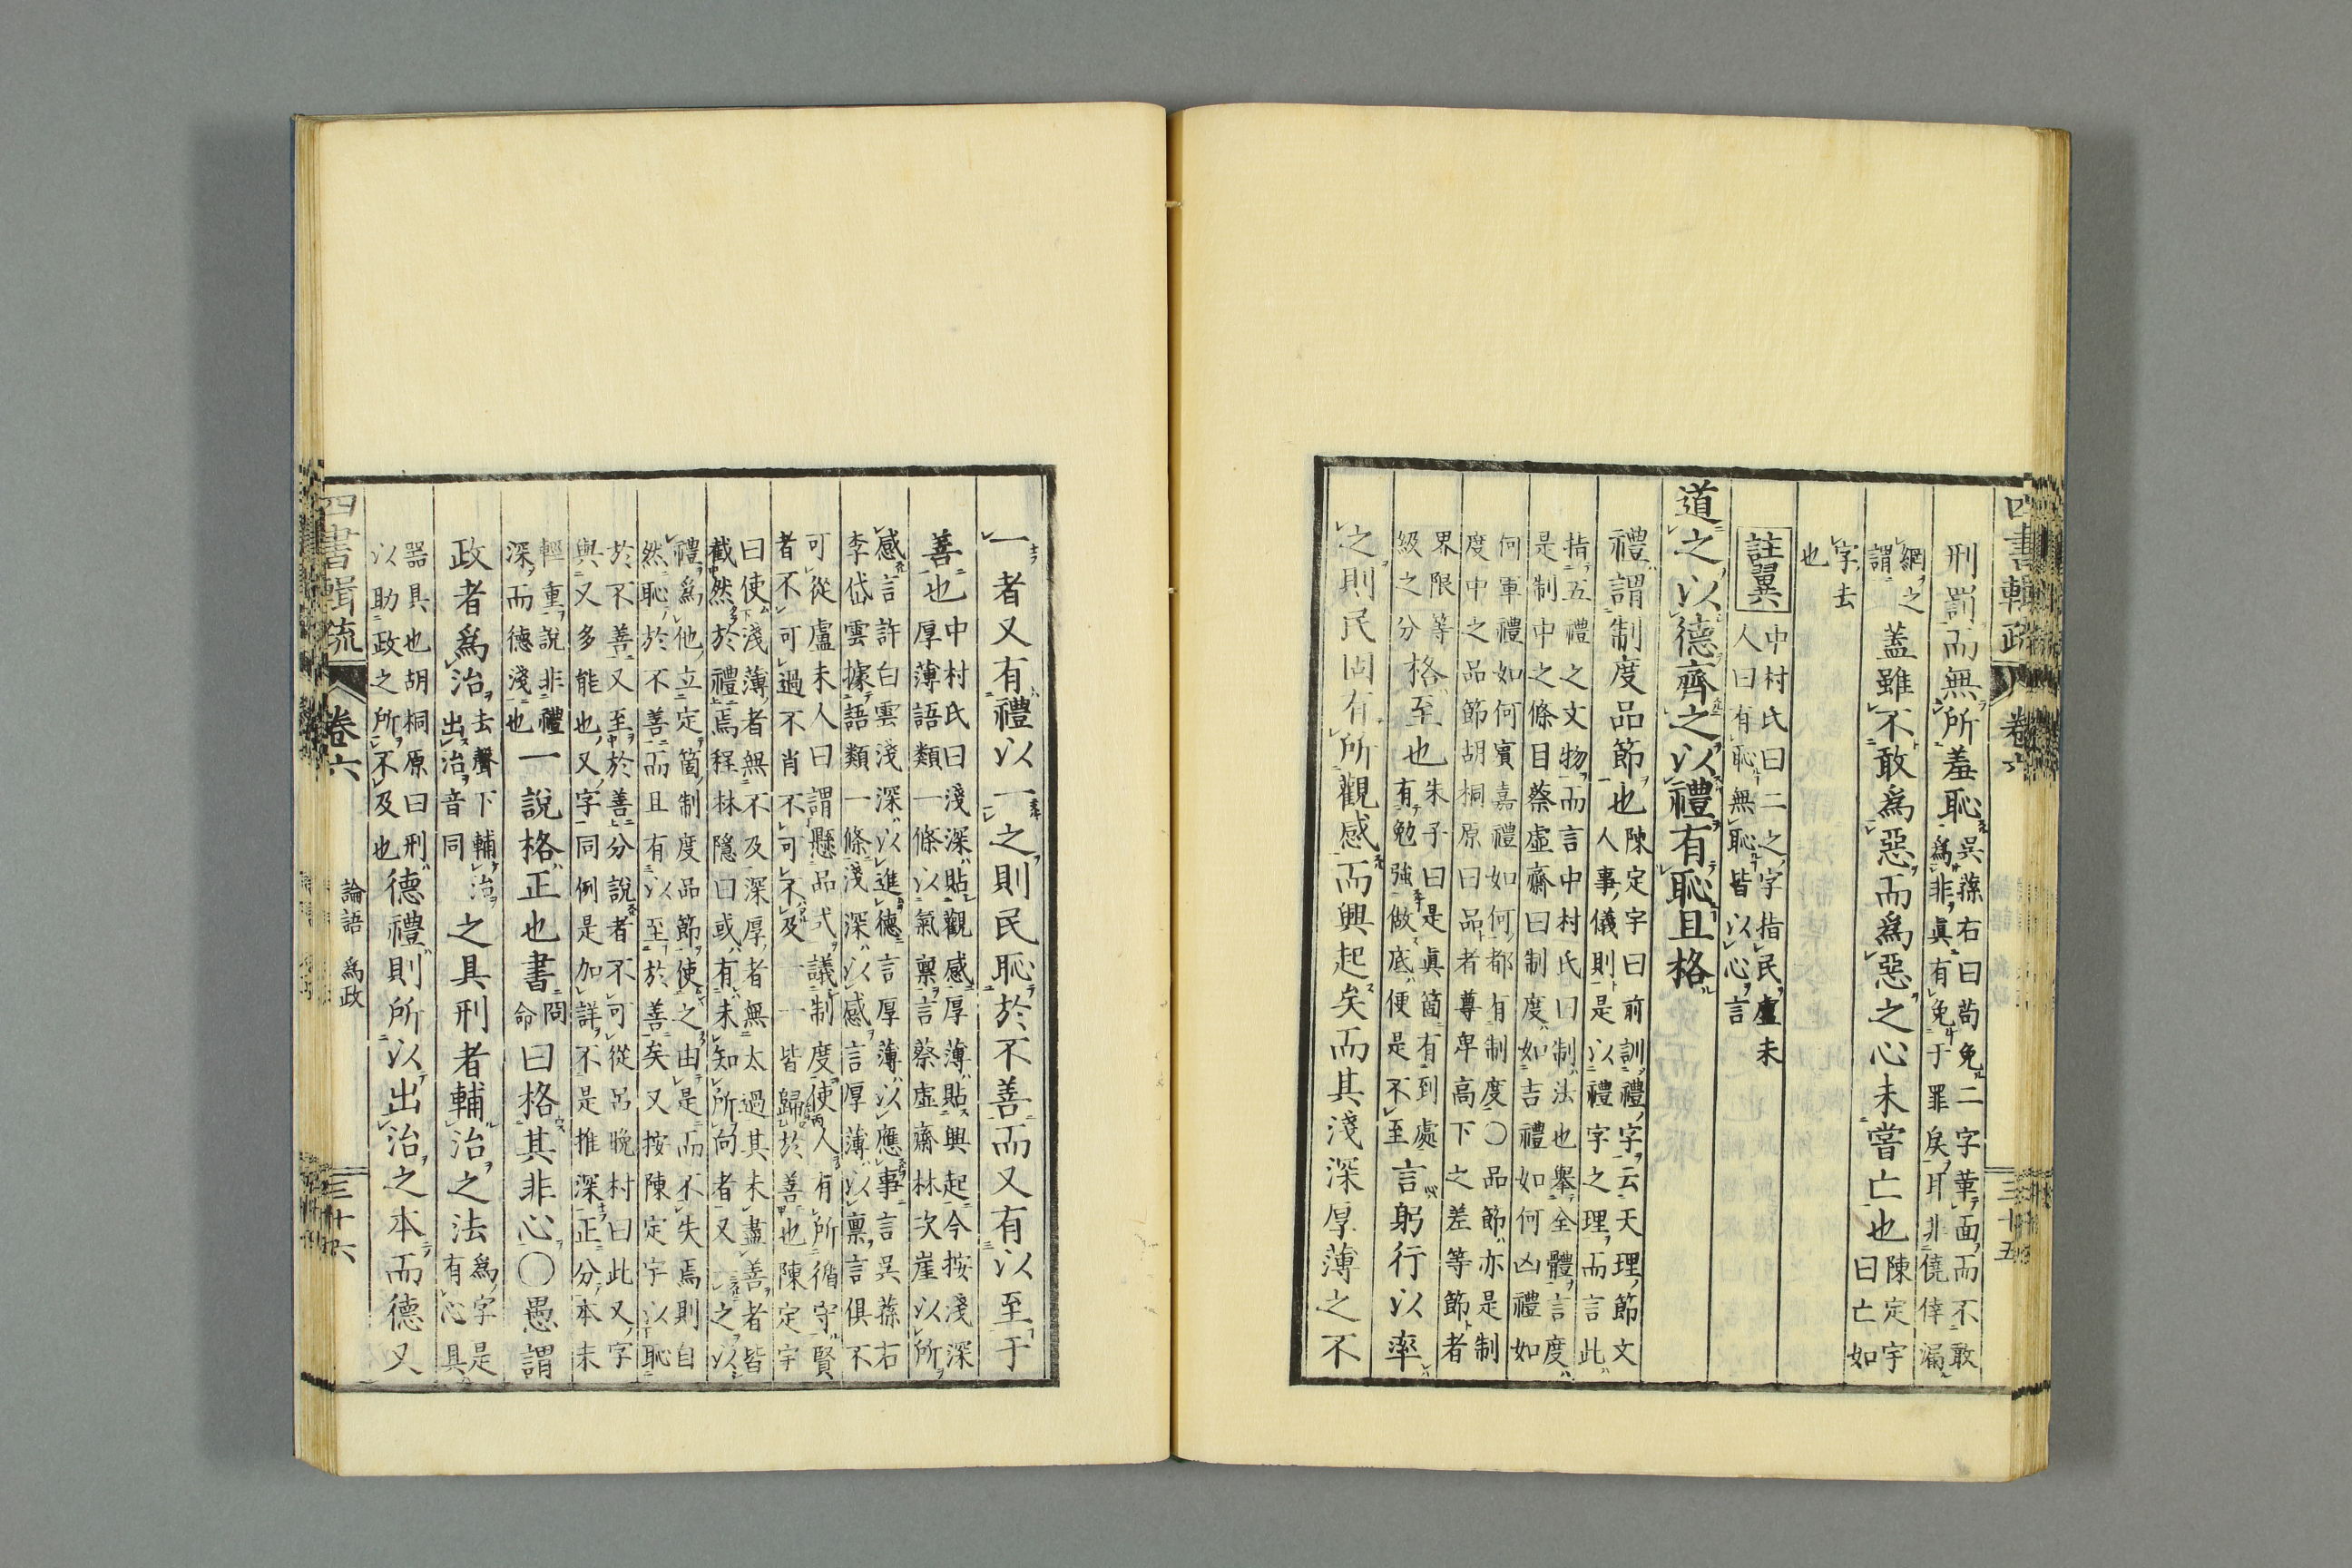 四書輯疏 卷六 三十五
刑罰而無所羞恥 吳蓀右曰茍免二字革面而不敢
爲非眞有免于罪戾耳非僥倖漏
網之
謂 蓋雖不敢爲惡而爲惡之心未嘗亡也 陳定宇
曰亡如
字去
也
註翼 中村氏曰二之字指民盧未
人曰有恥無恥皆以心言
道之以德齊之以禮有恥且格
禮謂制度品節也 陳定宇曰前訓禮字云天理節文
人事儀則是以禮字之理而言此
指五禮之文物而言中村氏曰制法也舉全體言度
是制中之條目蔡虛齋曰制度如吉禮如何凶禮如
何軍禮如何賓嘉禮如何都有制度〇品節亦是制
度中之品節胡桐原曰品者尊卑高下之差等節者
界限等
級之分 格至也 朱子曰是眞箇有到處
有勉強做底便是不至 言躬行以率
之則民固有所觀感而興起矣而其淺深厚薄之不
一者又有禮以一之則民恥於不善而又有以至于
善也 中村氏曰淺深貼觀感厚薄貼興起今按淺深
厚薄語類一條以氣稟言蔡虛齋林次崖以所
感言許白雲淺深以進德言厚薄以應事言吳蓀右
李岱雲據語類一條淺深以感言厚薄以稟言俱不
可從盧未人曰謂懸品式議制度使人有所循守賢
者不可過不肖不可不及一一皆歸於善也陳定宇
曰使淺薄者無不及深厚者無太過其未盡善者皆
截然於禮焉程林隱曰或有未知所向者又一之以
禮爲他立定箇制度品節使之由是而不失焉則自
然恥於不善而且有以至於善矣又按陳定宇以恥
於不善又至於善分說者不可從呂晚村曰此又字
與又多能也又字同例是加詳不是推深正分本末
輕重說非禮
深而德淺也 一說格正也書 冏
命 曰格其非心〇愚謂
政者爲治 去聲下輔治
出治音同 之具刑者輔治之法 爲字是
有心具
器具也胡桐原曰刑
以助政之所不及也 德禮則所以出治之本而德又
四書輯疏 卷六 論語 爲政 三十六